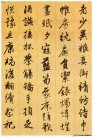 老少異糧妾御績紡侍巾
帷房紈扇圓潔銀燭煒煌
晝眠夕寐藍筍象床弦歌
酒讌接杯舉觴矯手頓足
悅豫且康嫡後嗣續祭祀